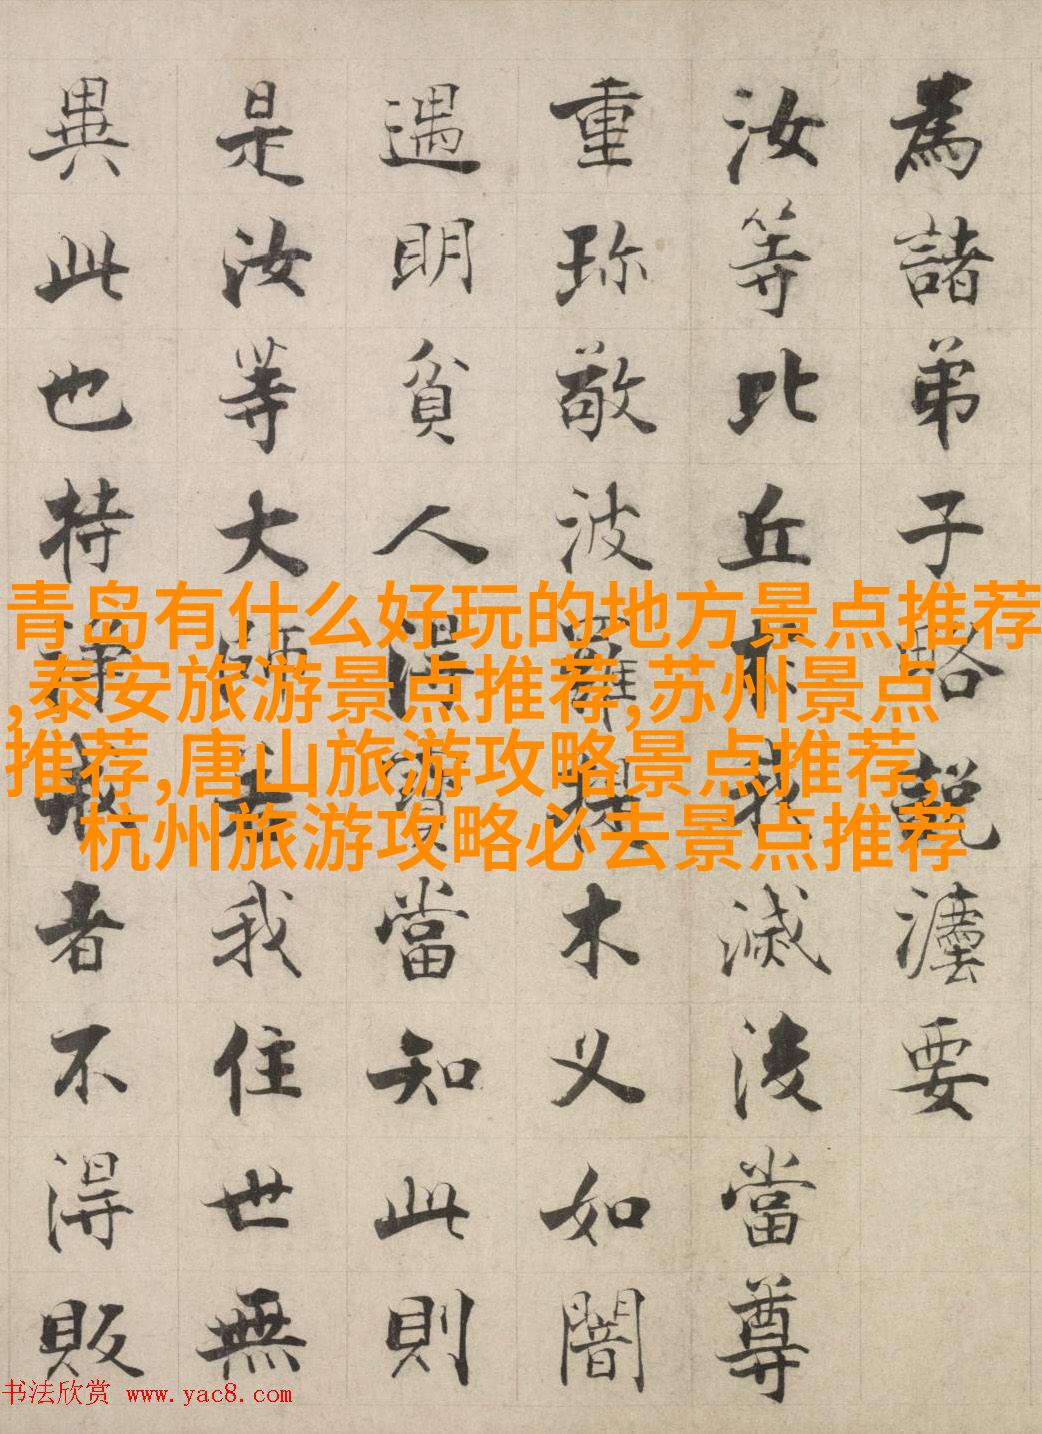 為諸弟子略說灋要
汝等比丘於我滅後當尊
重珍敬波羅提木叉如闇
遇明貧人得寶當知此則
是汝等大師若我住世無
異此也持淨戒者不得販
青岛有什么好玩的地方景点推荐
,泰安旅游景点推荐,苏州景点
推荐,唐山旅游攻略景点推荐,
杭州旅游攻略必去景点推荐
书法欣赏 www.yac8.com